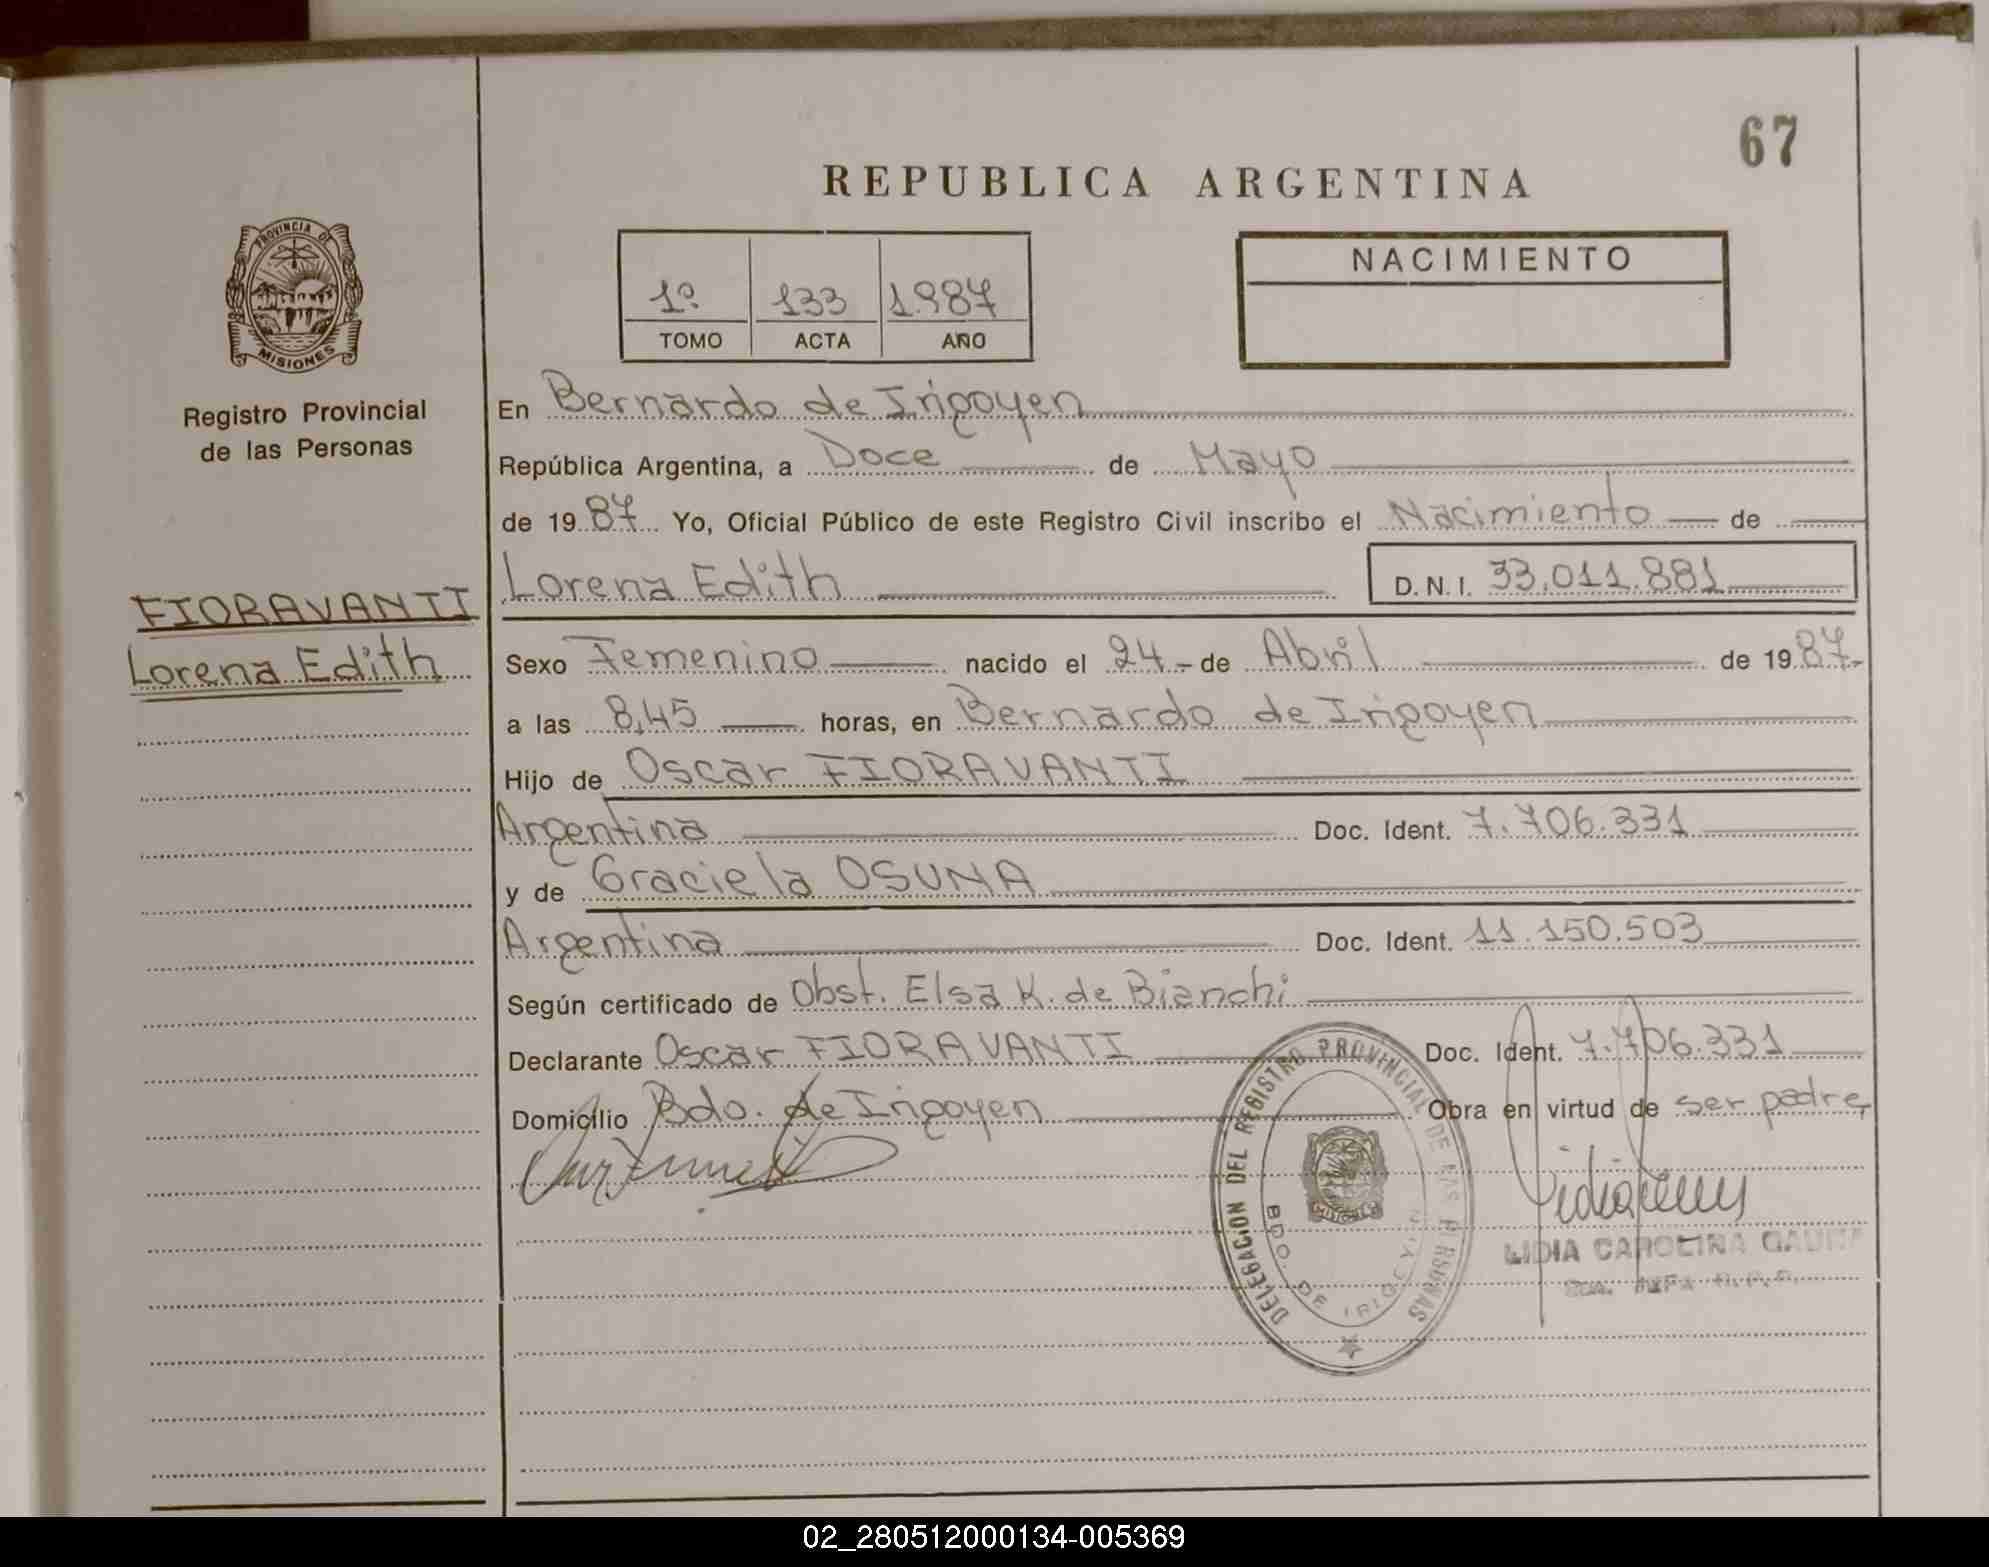 67
REPUBLICA ARGENTINA
PROVINCIA DE
MISIONES
Registro Provincial
de las Personas
1º 133 1.987
TOMO ACTA AÑO
NACIMIENTO
En Bernardo de Irigoyen
República Argentina, a Doce de Mayo
de 19 87 Yo, Oficial Público de este Registro Civil inscribo el Nacimiento de
FIORAVANTI
Lorena Edith
Lorena Edith D.N.I. 33.011.881
Sexo Femenino nacido el 24 - de Abril de 19 87.-
a las 8,45 horas, en Bernardo de Irigoyen
Hijo de Oscar FIORAVANTI
Argentina Doc. Ident. 7.706.331
y de Graciela OSUNA
Argentina Doc. Ident. 11.150.503
Según certificado de Obst. Elsa K. de Bianchi
Declarante Oscar FIORAVANTI Doc. Ident. 7.706.331
Domicilio Bdo. de Irigoyen Obra en virtud de ser padre
DELEGACION DEL REGISTRO PROVINCIAL DE LAS PERSONAS
BDO. DE IRIGOYEN
MISIONES
LIDIA CAROLINA
02_280512000134-005369